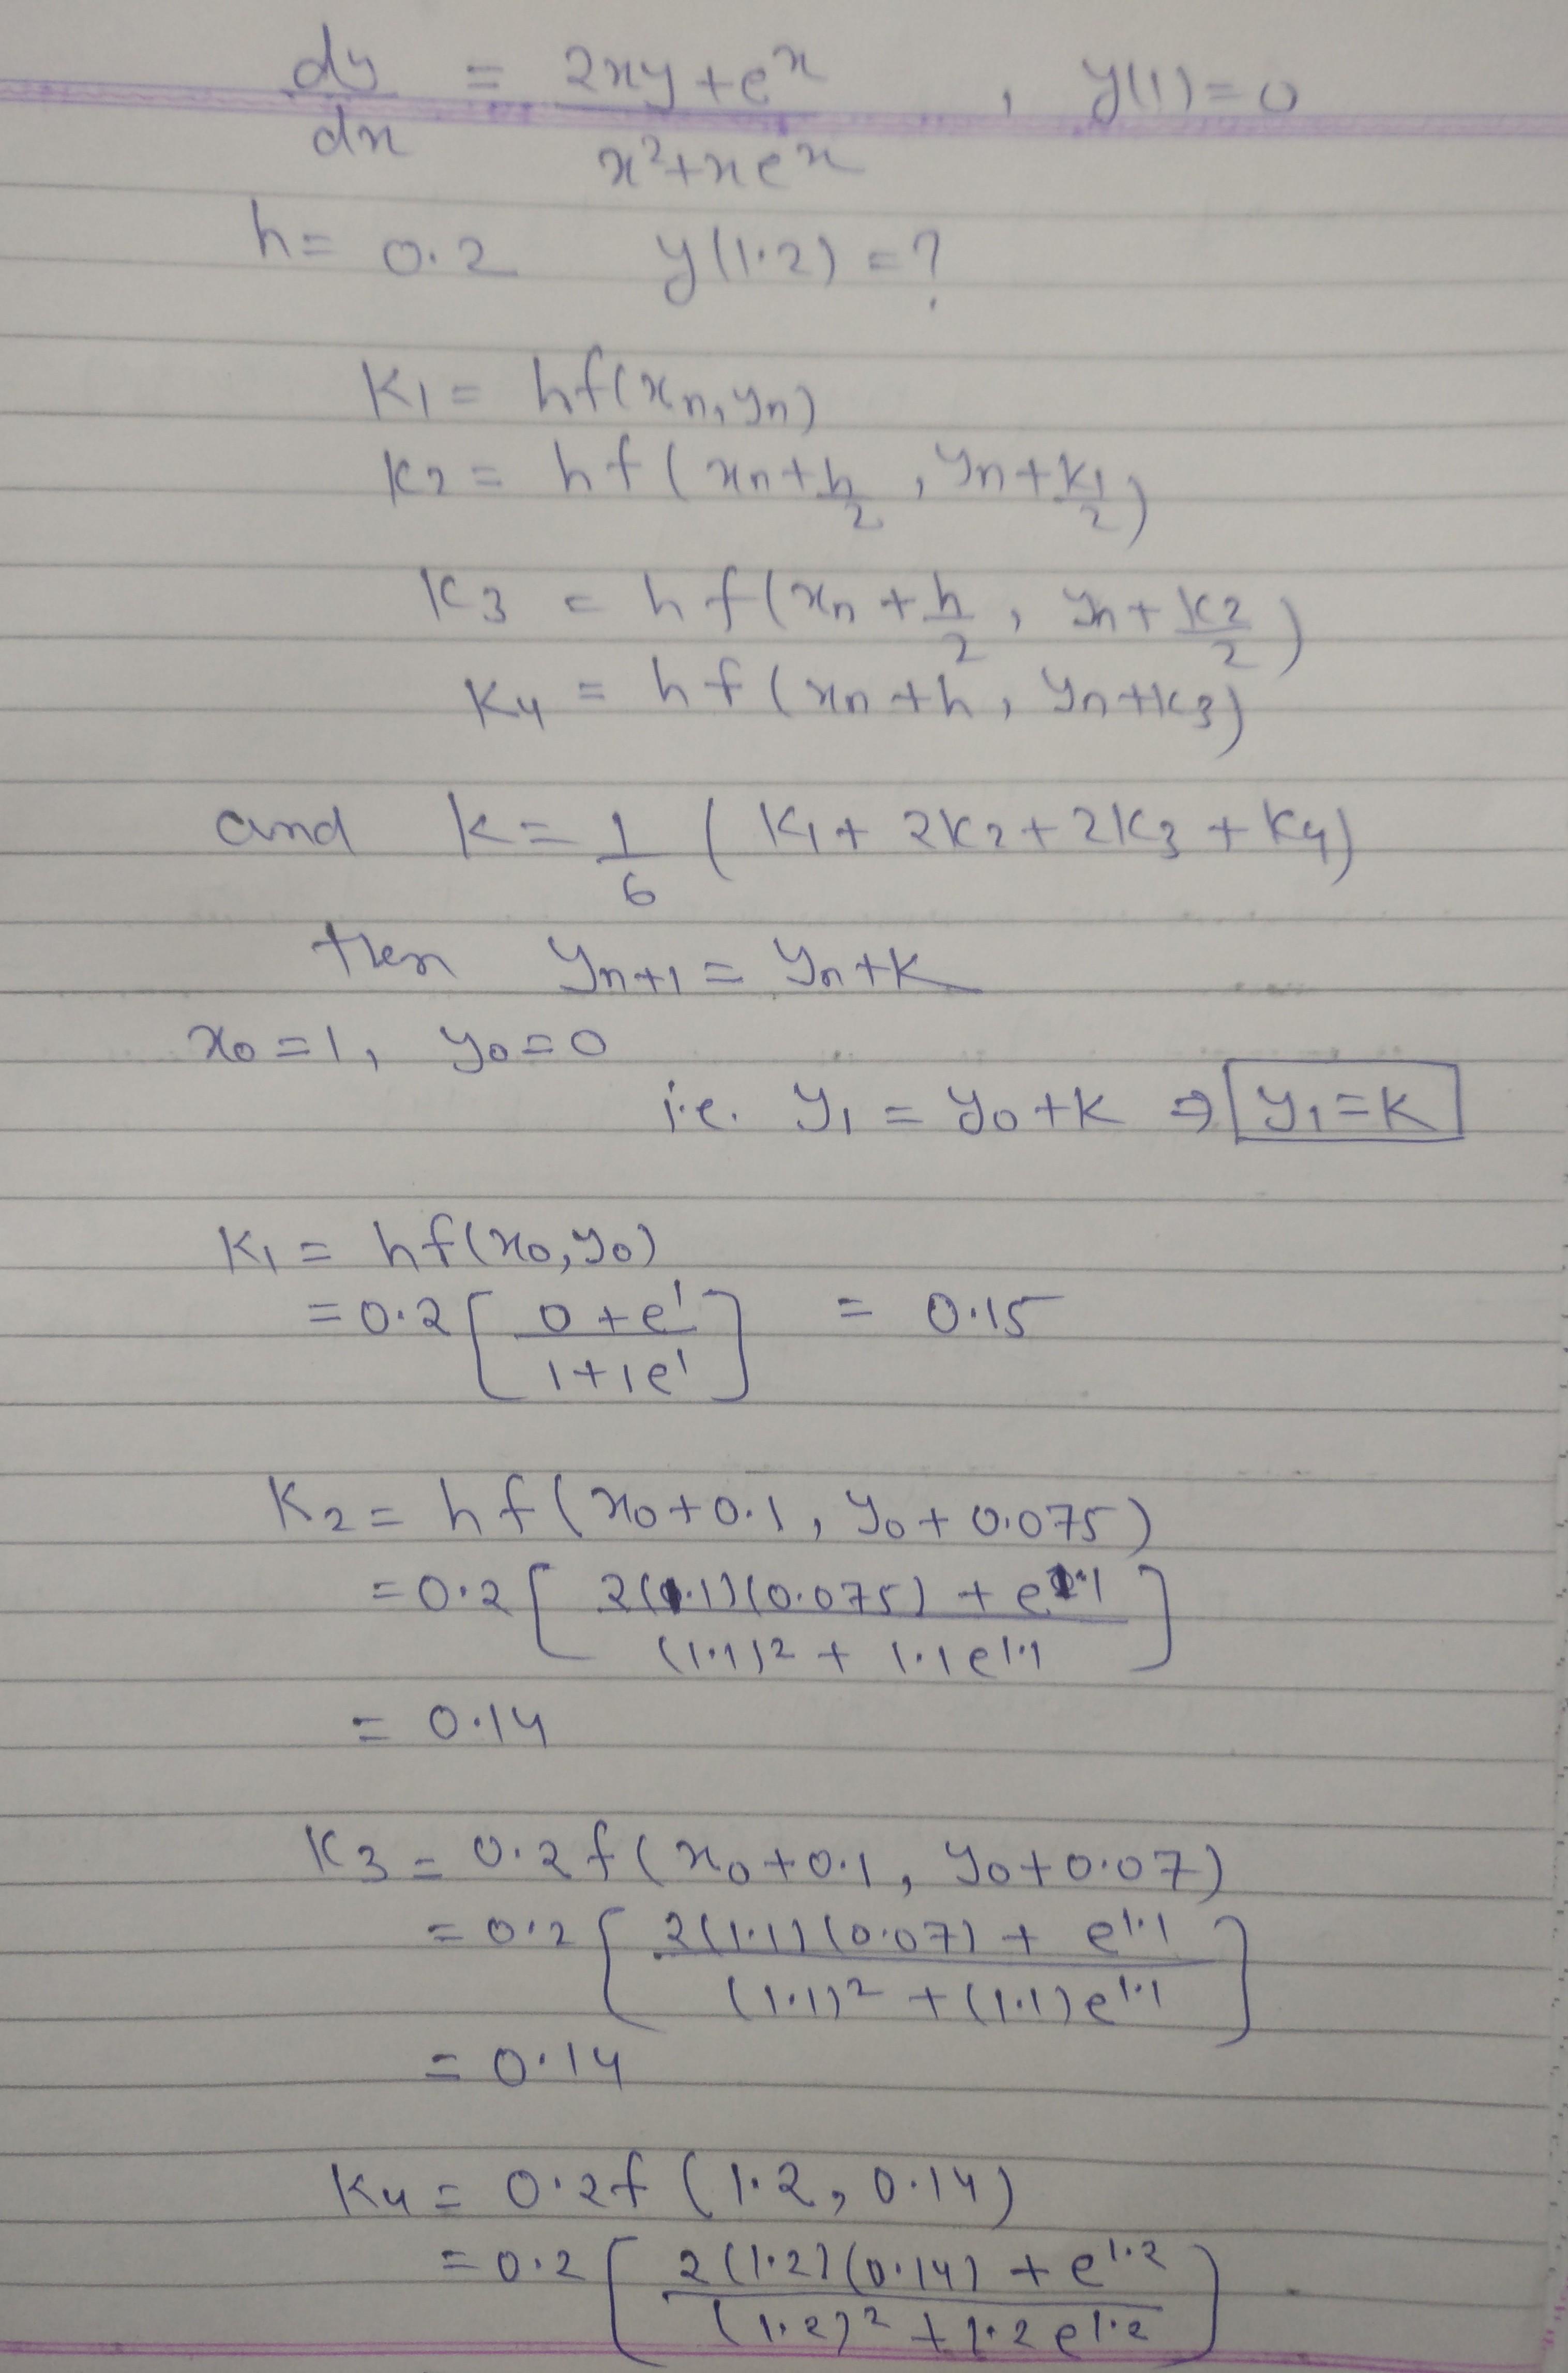 dy/dx = (2xy+e^x)/(x²+xe^x) , y(1)=0
h= 0.2 y(1.2) = ?
K1 = hf(xn, yn)
K2 = hf(xn+h/2, yn+K1/2)
K3 = hf(xn+h/2, yn+K2/2)
K4 = hf(xn+h, yn+K3)
and K = 1/6 (K1+ 2K2+2K3+K4)
then yn+1 = yn+K
x0=1, y0=0
i.e. y1 = y0+K ⇒ y1=K
K1 = hf(x0,y0)
=0.2[(0+e^1)/(1+1e^1)] = 0.15
K2 = hf(x0+0.1, y0+0.075)
=0.2[(2(1.1)(0.075)+e^1.1)/((1.1)²+1.1e^1.1)]
= 0.14
K3 = 0.2f(x0+0.1, y0+0.07)
=0.2[(2(1.1)(0.07)+e^1.1)/((1.1)²+(1.1)e^1.1)]
= 0.14
K4 = 0.2f(1.2, 0.14)
=0.2[(2(1.2)(0.14)+e^1.2)/((1.2)²+1.2e^1.2)]